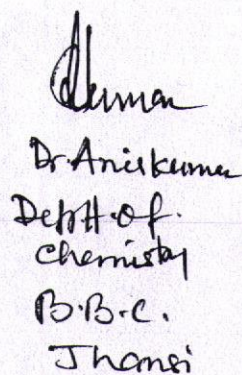 Dr. Anil Kumar
Deptt. of.
Chemistry
B.B.C.
Jhansi